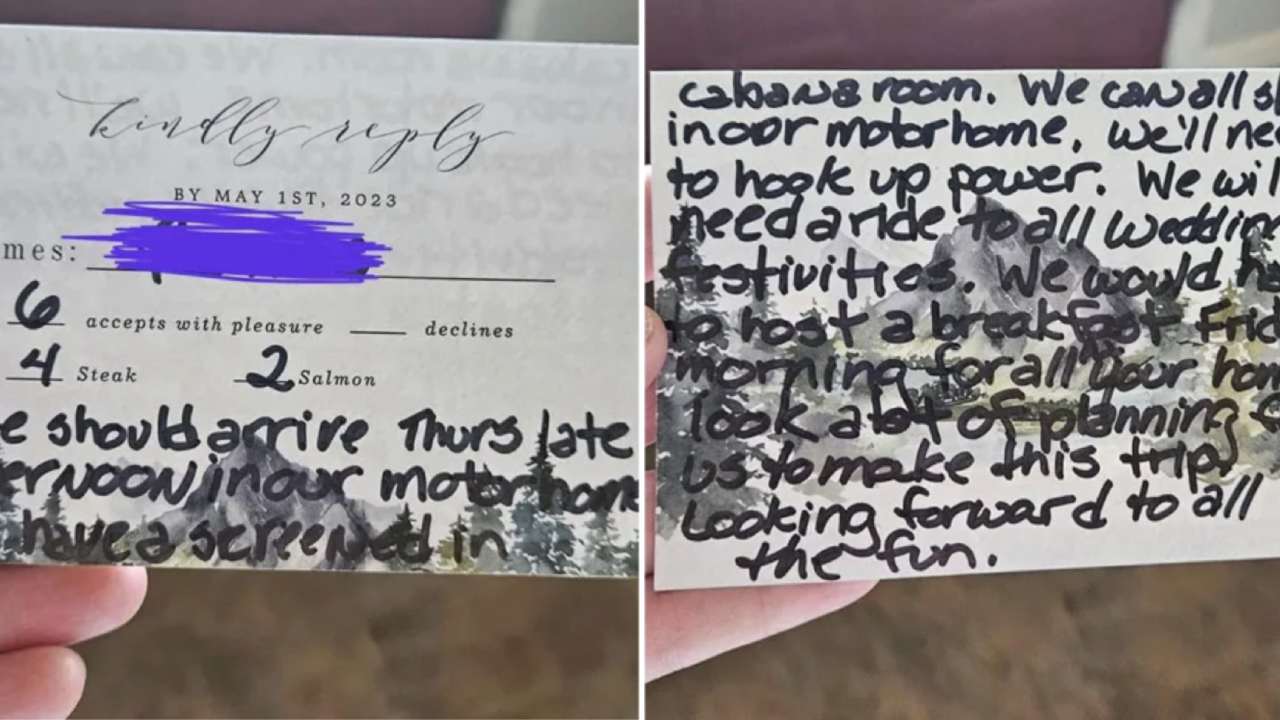 kindly reply
BY MAY 1ST, 2023
mes:
6 accepts with pleasure ____ declines
4 Steak 2 Salmon
e should arrive Thurs late
ernoon in our motorhom
have a screened in
cabana room. We can all sl
in our motorhome, we'll nee
to hook up power. We wil
need a ride to all weddin
festivities. We would ha
to host a breakfast Frid
morning for all your hom
look a lot of planning f
us to make this trip,
Looking forward to all
the fun.